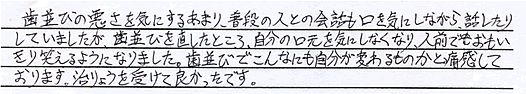 歯並びの悪さを気にするあまり、普段の人との会話も口を気にしながら、話したり
していましたが、歯並びを直したところ、自分の口元を気にしなくなり、人前でもおもい
きり笑えるようになりました。歯並びでこんなにも自分が変わるものかと痛感して
おります。治りょうを受けて良かったです。